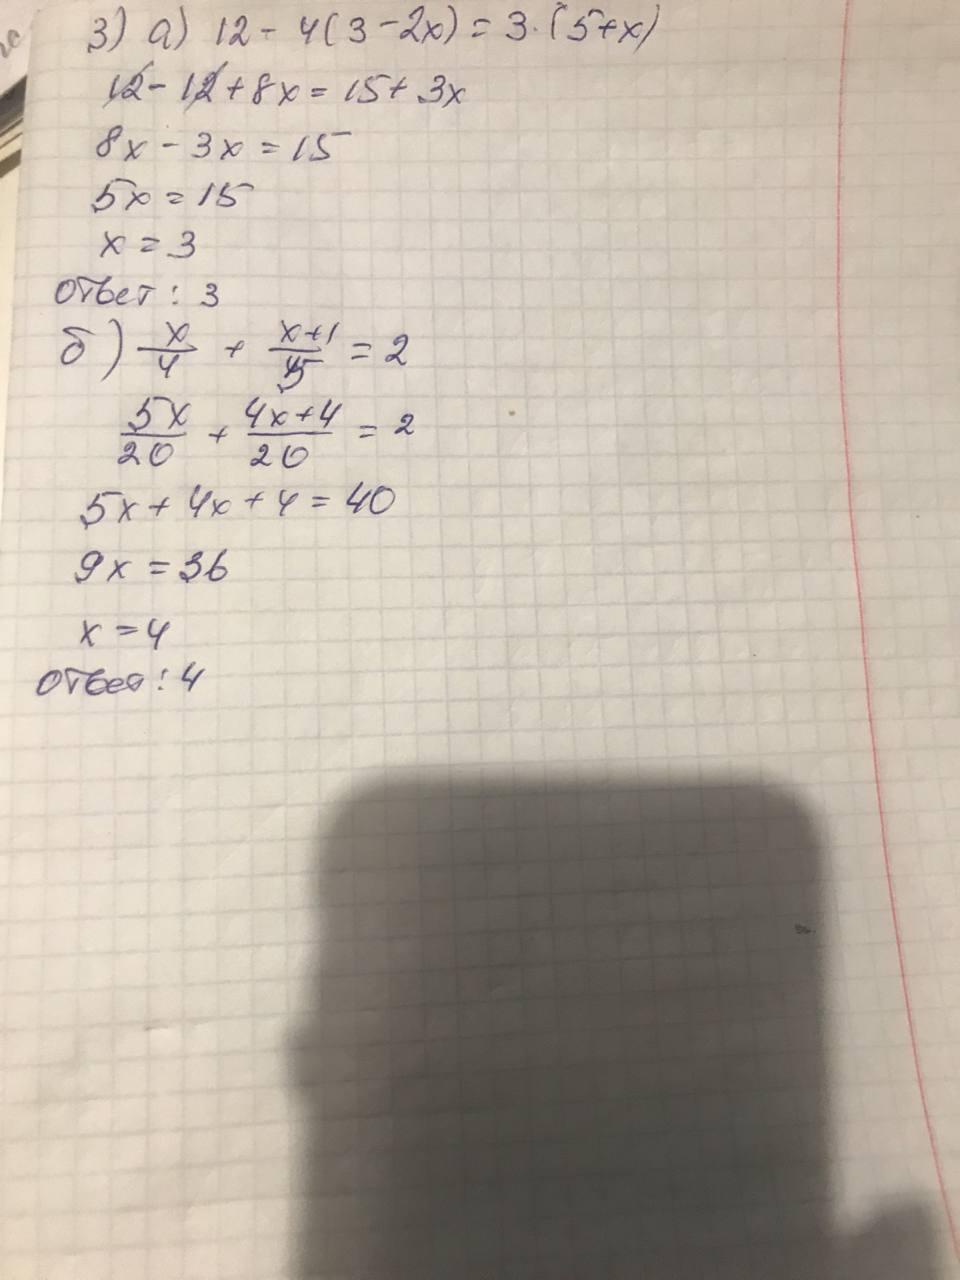 3) а) 12 - 4(3 - 2x) = 3·(5+x)
12 - 12 + 8x = 15 + 3x
8x - 3x = 15
5x = 15
x = 3
ответ: 3
б) x/4 + (x+1)/5 = 2
5x/20 + (4x+4)/20 = 2
5x + 4x + 4 = 40
9x = 36
x = 4
ответ: 4